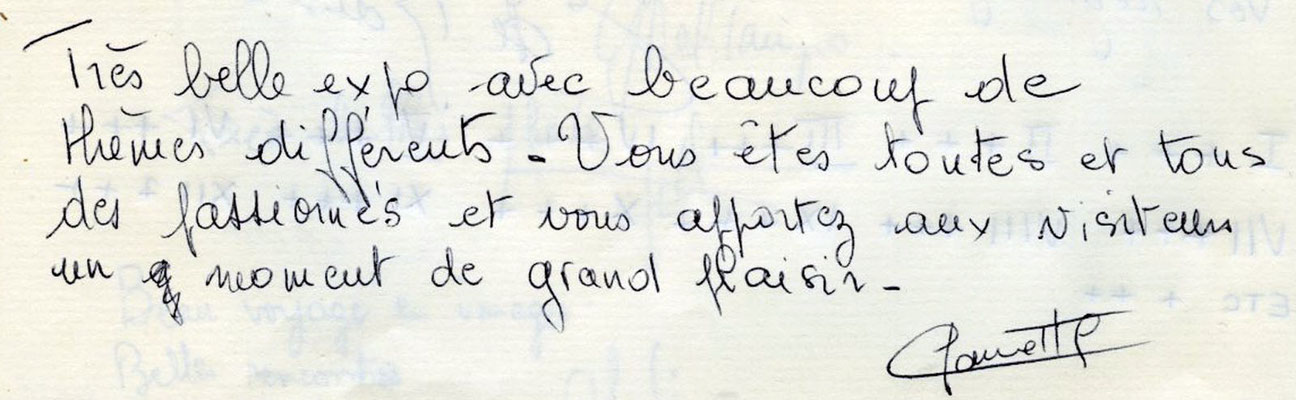 Très belle expo avec beaucoup de
thèmes différents - Vous êtes toutes et tous
des passionnés et vous apportez aux visiteurs
un moment de grand plaisir -